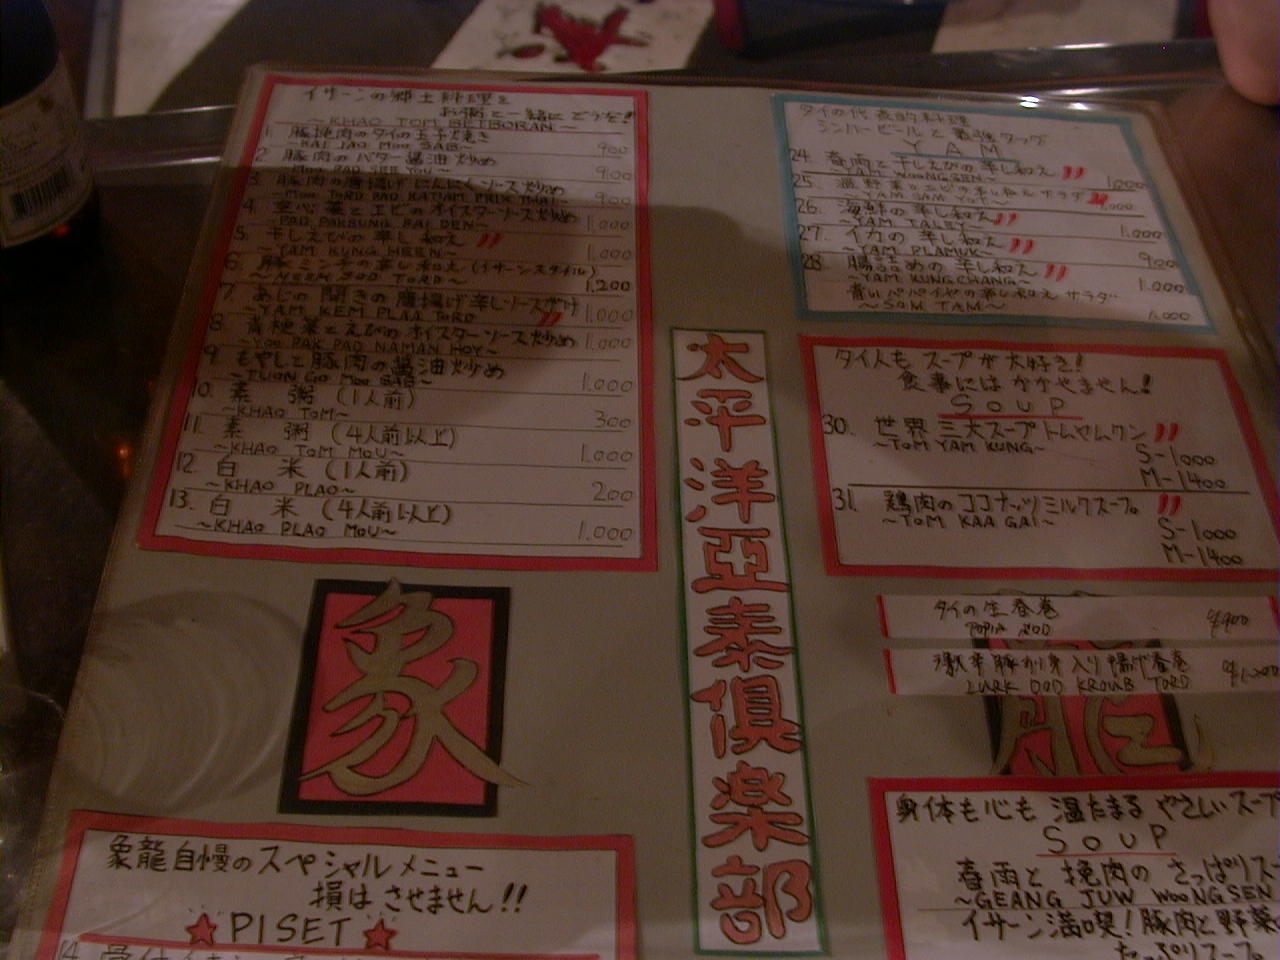 イサーンの郷土料理を
お粥と一緒にどうぞ!!
~KHAO TOM BETBORAN~
1. 豚挽肉のタイの玉子焼き 900
~KAI JAO MOO SAB~
2. 豚肉のバター醤油炒め 900
~MOO PAD SEE YOU~
3. 豚肉の唐揚げにんにくソース炒め 900
~MOO TORD PAD KATIAM PRIK THAI~
4. 空心菜とエビのオイスターソース炒め 1,000
~PAD PAKBUNG
5. 干しえびの辛し和え 1,000
~YAM KUNG HEEN~
6. 豚ミミの辛し和え (イサーンスタイル) 1,200
7. あじの開きの唐揚げ辛しソースがけ 1,000
~YAM KEM PLAA TORD
8. 青梗菜とえびのオイスターソース炒め 1,000
~YOU PAK PAD NAMAN HOY~
9. もやしと豚肉の醤油炒め 1,000
~TUON GO MOO SAB~
10. 素 粥 (1人前) 300
~KHAO TOM~
11. 素 粥 (4人前以上) 1,000
~KHAO TOM MOU~
12. 白 米 (1人前) 200
~KHAO PLAO~
13. 白 米 (4人前以上) 1,000
~KHAO PLAO MOU~
象
象龍自慢のスペシャルメニュー
損はさせません!!
★PISET★
14.
太平洋亞泰倶楽部
タイの代表的料理
シンハービールと最強タッグ
YAM
24. 春雨と干しえびの辛し和え 1,000
~YAM WOONGSEN~
25. 温野菜とエビの辛し和えサラダ 1,000
~YAM SAM YOT~
26. 海鮮の辛し和え 1,000
~YAM TALEY~
27. イカの辛し和え 900
~YAM PLAMUK~
28. 腸詰めの辛し和え 1,000
~YAM KUNCHANG~
青いパパイヤの辛し和えサラダ 1,000
~SOM TAM~
タイ人もスープが大好き!
食事にはかかせません!
SOUP
30. 世界三大スープトムヤムクン
~TOM YAM KUNG~
S-1000
M-1400
31. 鶏肉のココナッツミルクスープ
~TOM KAA GAI~
S-1000
M-1400
タイの生春巻 ¥900
POPIA SOD
激辛豚が身入り揚げ春巻
LURK DOD KROUB TORD
龍
身体も心も温たまるやさしいスープ
SOUP
春雨と挽肉のさっぱりスー
~GEANG JUW WOONGSEN
イサーン満喫!豚肉と野菜
たっぷりスープ